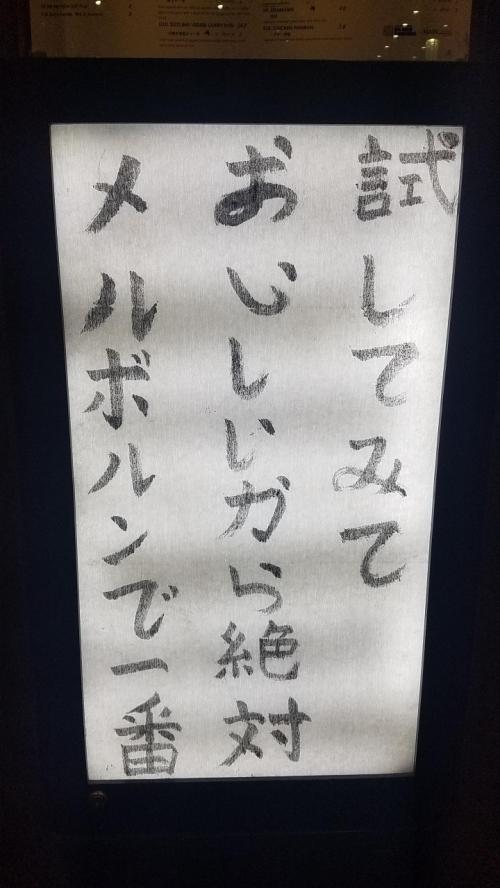 試してみて
おいしいから絶対
メルボルンで一番